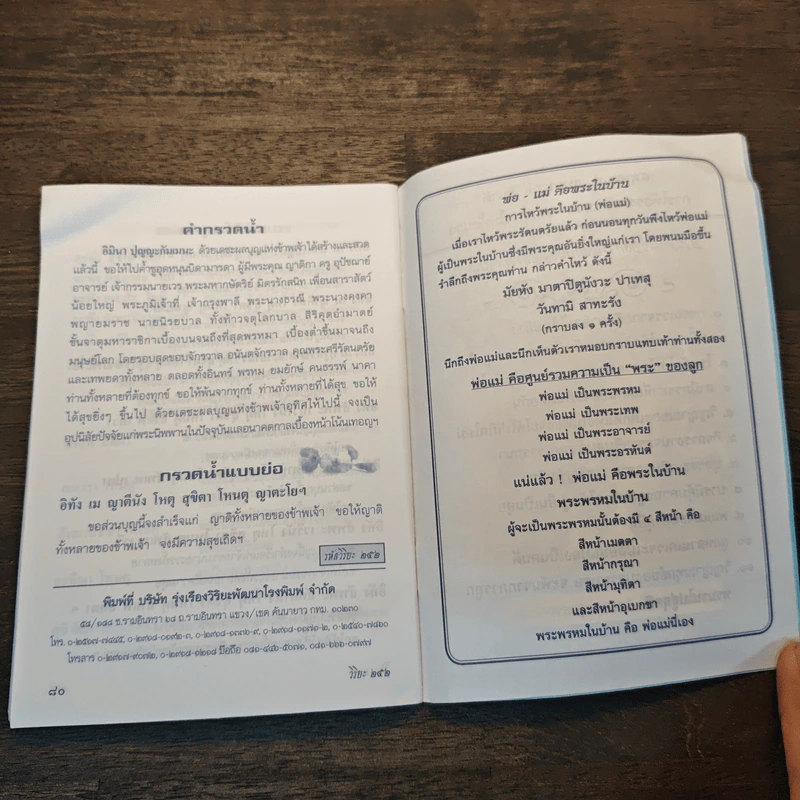 คำกรวดน้ำ
อิมินา ปุญญะกัมเมนะ ด้วยเดชะผลบุญแห่งข้าพเจ้าได้สร้างและสวด
แล้วนี้ ขอให้ไปค้ำชูอุดหนุนบิดามารดา ผู้มีพระคุณ ญาติกา ครู อุปัชฌาย์
อาจารย์ เจ้ากรรมนายเวร พระมหากษัตริย์ มิตรรักสนิท เพื่อนสาราสัตว์
น้อยใหญ่ พระภูมิเจ้าที่ เจ้ากรุงพาลี พระนางธรณี พระนางคงคา
พญายมราช นายนิรยบาล ทั้งท้าวจตุโลกบาล สิริคุตอำมาตย์
ชั้นจาตุมหาราชิกาเบื้องบนจนถึงที่สุดพรหมา เบื้องต่ำขึ้นมาจนถึง
มนุษย์โลก โดยรอบสุดขอบจักรวาล อนันตจักรวาล คุณพระศรีรัตนตรัย
และเทพยดาทั้งหลาย ตลอดทั้งอินทร์ พรหม ยมยักษ์ คนธรรพ์ นาคา
ท่านทั้งหลายที่ต้องทุกข์ ขอให้พ้นจากทุกข์ ท่านทั้งหลายที่ได้สุข ขอให้
ได้สุขยิ่งๆ ขึ้นไป ด้วยเดชะผลบุญแห่งข้าพเจ้าอุทิศให้ไปนี้ จงเป็น
อุปนิสัยปัจจัยแก่พระนิพพานในปัจจุบันแลอนาคตกาลเบื้องหน้าโน้นเทอญฯ
กรวดน้ำแบบย่อ
อิทัง เม ญาตีนัง โหตุ สุขิตา โหนตุ ญาตะโยฯ
ขอส่วนบุญนี้จงสำเร็จแก่ ญาติทั้งหลายของข้าพเจ้า ขอให้ญาติ
ทั้งหลายของข้าพเจ้า จงมีความสุขเถิดฯ
รหัสวิริยะ ๒๕๒
พิมพ์ที่ บริษัท รุ่งเรืองวิริยะพัฒนาโรงพิมพ์ จำกัด
๕๘/๑๘๘ ซ.รามอินทรา ๖๘ ถ.รามอินทรา แขวง/เขต คันนายาว กทม. ๑๐๒๓๐
วิริยะ ๒๕๒
๘๐
พ่อ - แม่ คือพระในบ้าน
การไหว้พระในบ้าน (พ่อแม่)
เมื่อเราไหว้พระรัตนตรัยแล้ว ก่อนนอนทุกวันพึงไหว้พ่อแม่
ผู้เป็นพระในบ้านซึ่งมีพระคุณอันยิ่งใหญ่แก่เรา โดยพนมมือขึ้น
รำลึกถึงพระคุณท่าน กล่าวคำไหว้ ดังนี้
มัยหัง มาตาปิตูนังวะ ปาเทสุ
วันทามิ สาทะรัง
(กราบลง ๑ ครั้ง)
นึกถึงพ่อแม่และนึกเห็นตัวเราหมอบกราบแทบเท้าท่านทั้งสอง
พ่อแม่ คือศูนย์รวมความเป็น "พระ" ของลูก
พ่อแม่ เป็นพระพรหม
พ่อแม่ เป็นพระเทพ
พ่อแม่ เป็นพระอาจารย์
พ่อแม่ เป็นพระอรหันต์
แน่แล้ว ! พ่อแม่ คือพระในบ้าน
พระพรหมในบ้าน
ผู้จะเป็นพระพรหมนั้นต้องมี ๔ สีหน้า คือ
สีหน้าเมตตา
สีหน้ากรุณา
สีหน้ามุทิตา
และสีหน้าอุเบกขา
พระพรหมในบ้าน คือ พ่อแม่นี่เอง